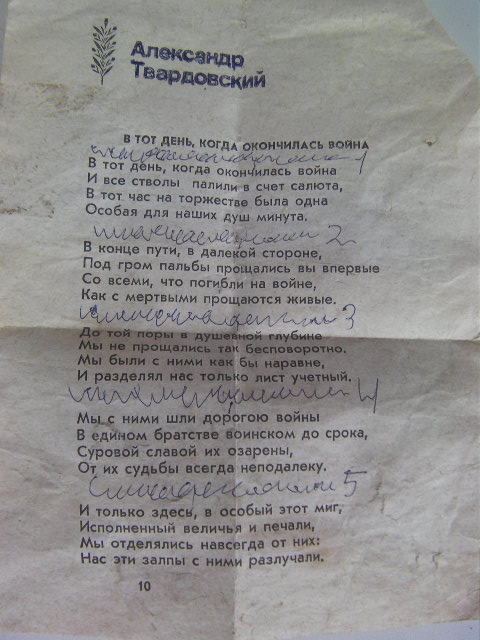 Александр
Твардовский
В ТОТ ДЕНЬ, КОГДА ОКОНЧИЛАСЬ ВОЙНА
1
В тот день, когда окончилась война
И все стволы палили в счет салюта,
В тот час на торжестве была одна
Особая для наших душ минута.
2
В конце пути, в далекой стороне,
Под гром пальбы прощались вы впервые
Со всеми, что погибли на войне,
Как с мертвыми прощаются живые.
3
До той поры в душевной глубине
Мы не прощались так бесповоротно.
Мы были с ними как бы наравне,
И разделял нас только лист учетный.
4
Мы с ними шли дорогою войны
В едином братстве воинском до срока,
Суровой славой их озарены,
От их судьбы всегда неподалеку.
5
И только здесь, в особый этот миг,
Исполненный величья и печали,
Мы отделялись навсегда от них:
Нас эти залпы с ними разлучали.
10